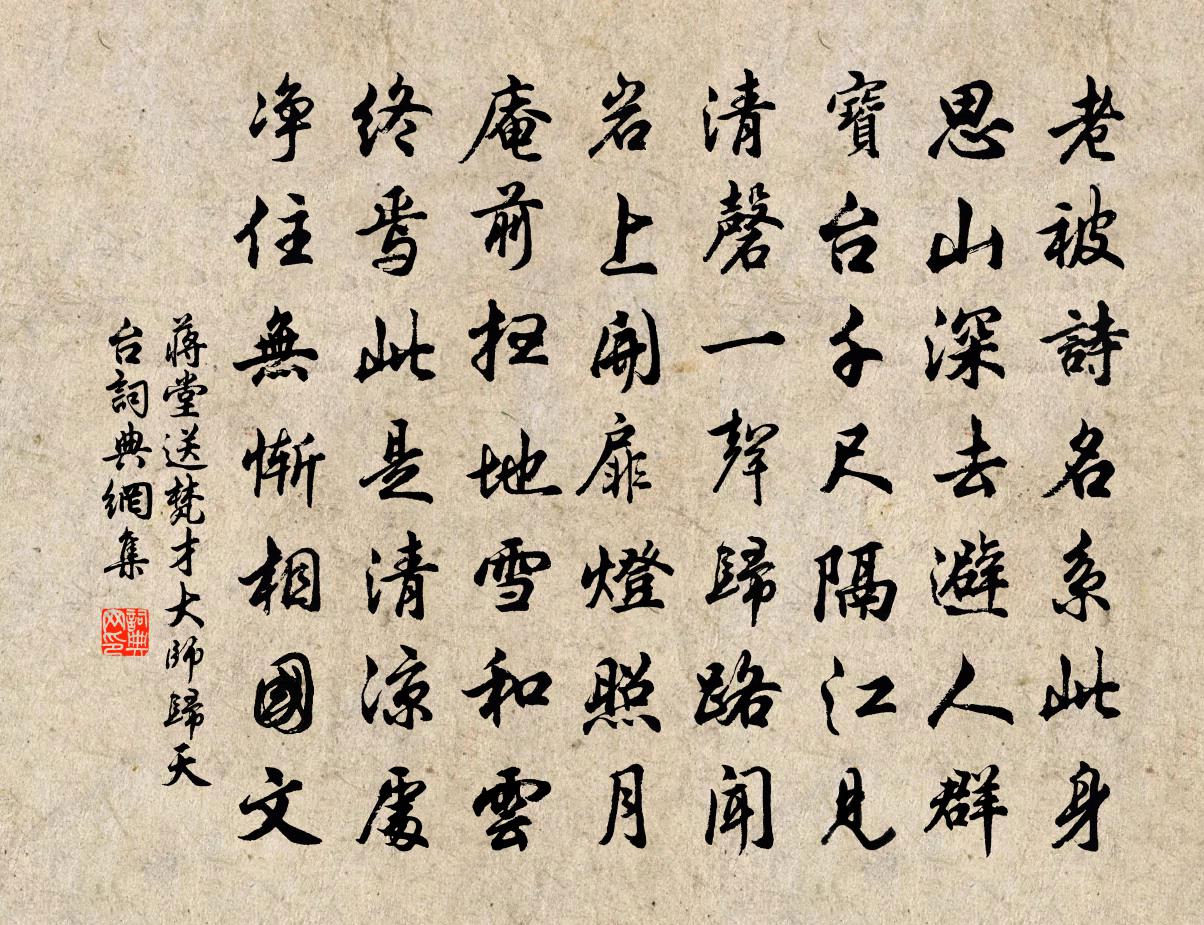 老被詩名系此身
思山深去避人群
寶台千尺隔江見
清磬一聲歸路聞
岩上開扉燈照月
庵前掃地雪和雲
終焉此是清涼處
净住無慚相國文
蔣堂送梵才大師歸天
台詞典網集
詞典
网印